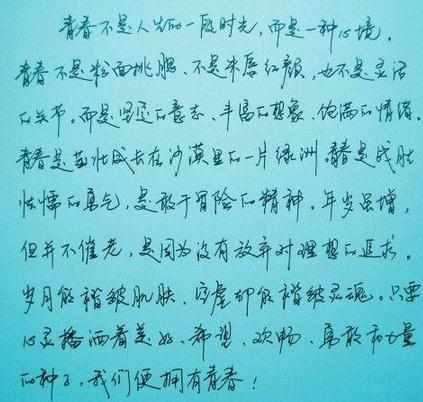 青春不是人生的一段时光，而是一种心境。
青春不是粉面桃腮、不是朱唇红颜，也不是灵活
的关节。而是坚定的意志、丰富的想象、饱满的情绪。
青春是茁壮成长在沙漠里的一片绿洲。青春是战胜
怯懦的勇气，是敢于冒险的精神。年岁虽增，
但并不催老，是因为没有放弃对理想的追求。
岁月能褶皱肌肤、空虚却能褶皱灵魂。只要
心灵播洒着美好、希望、欢畅、勇敢和力量
的种子，我们便拥有青春！